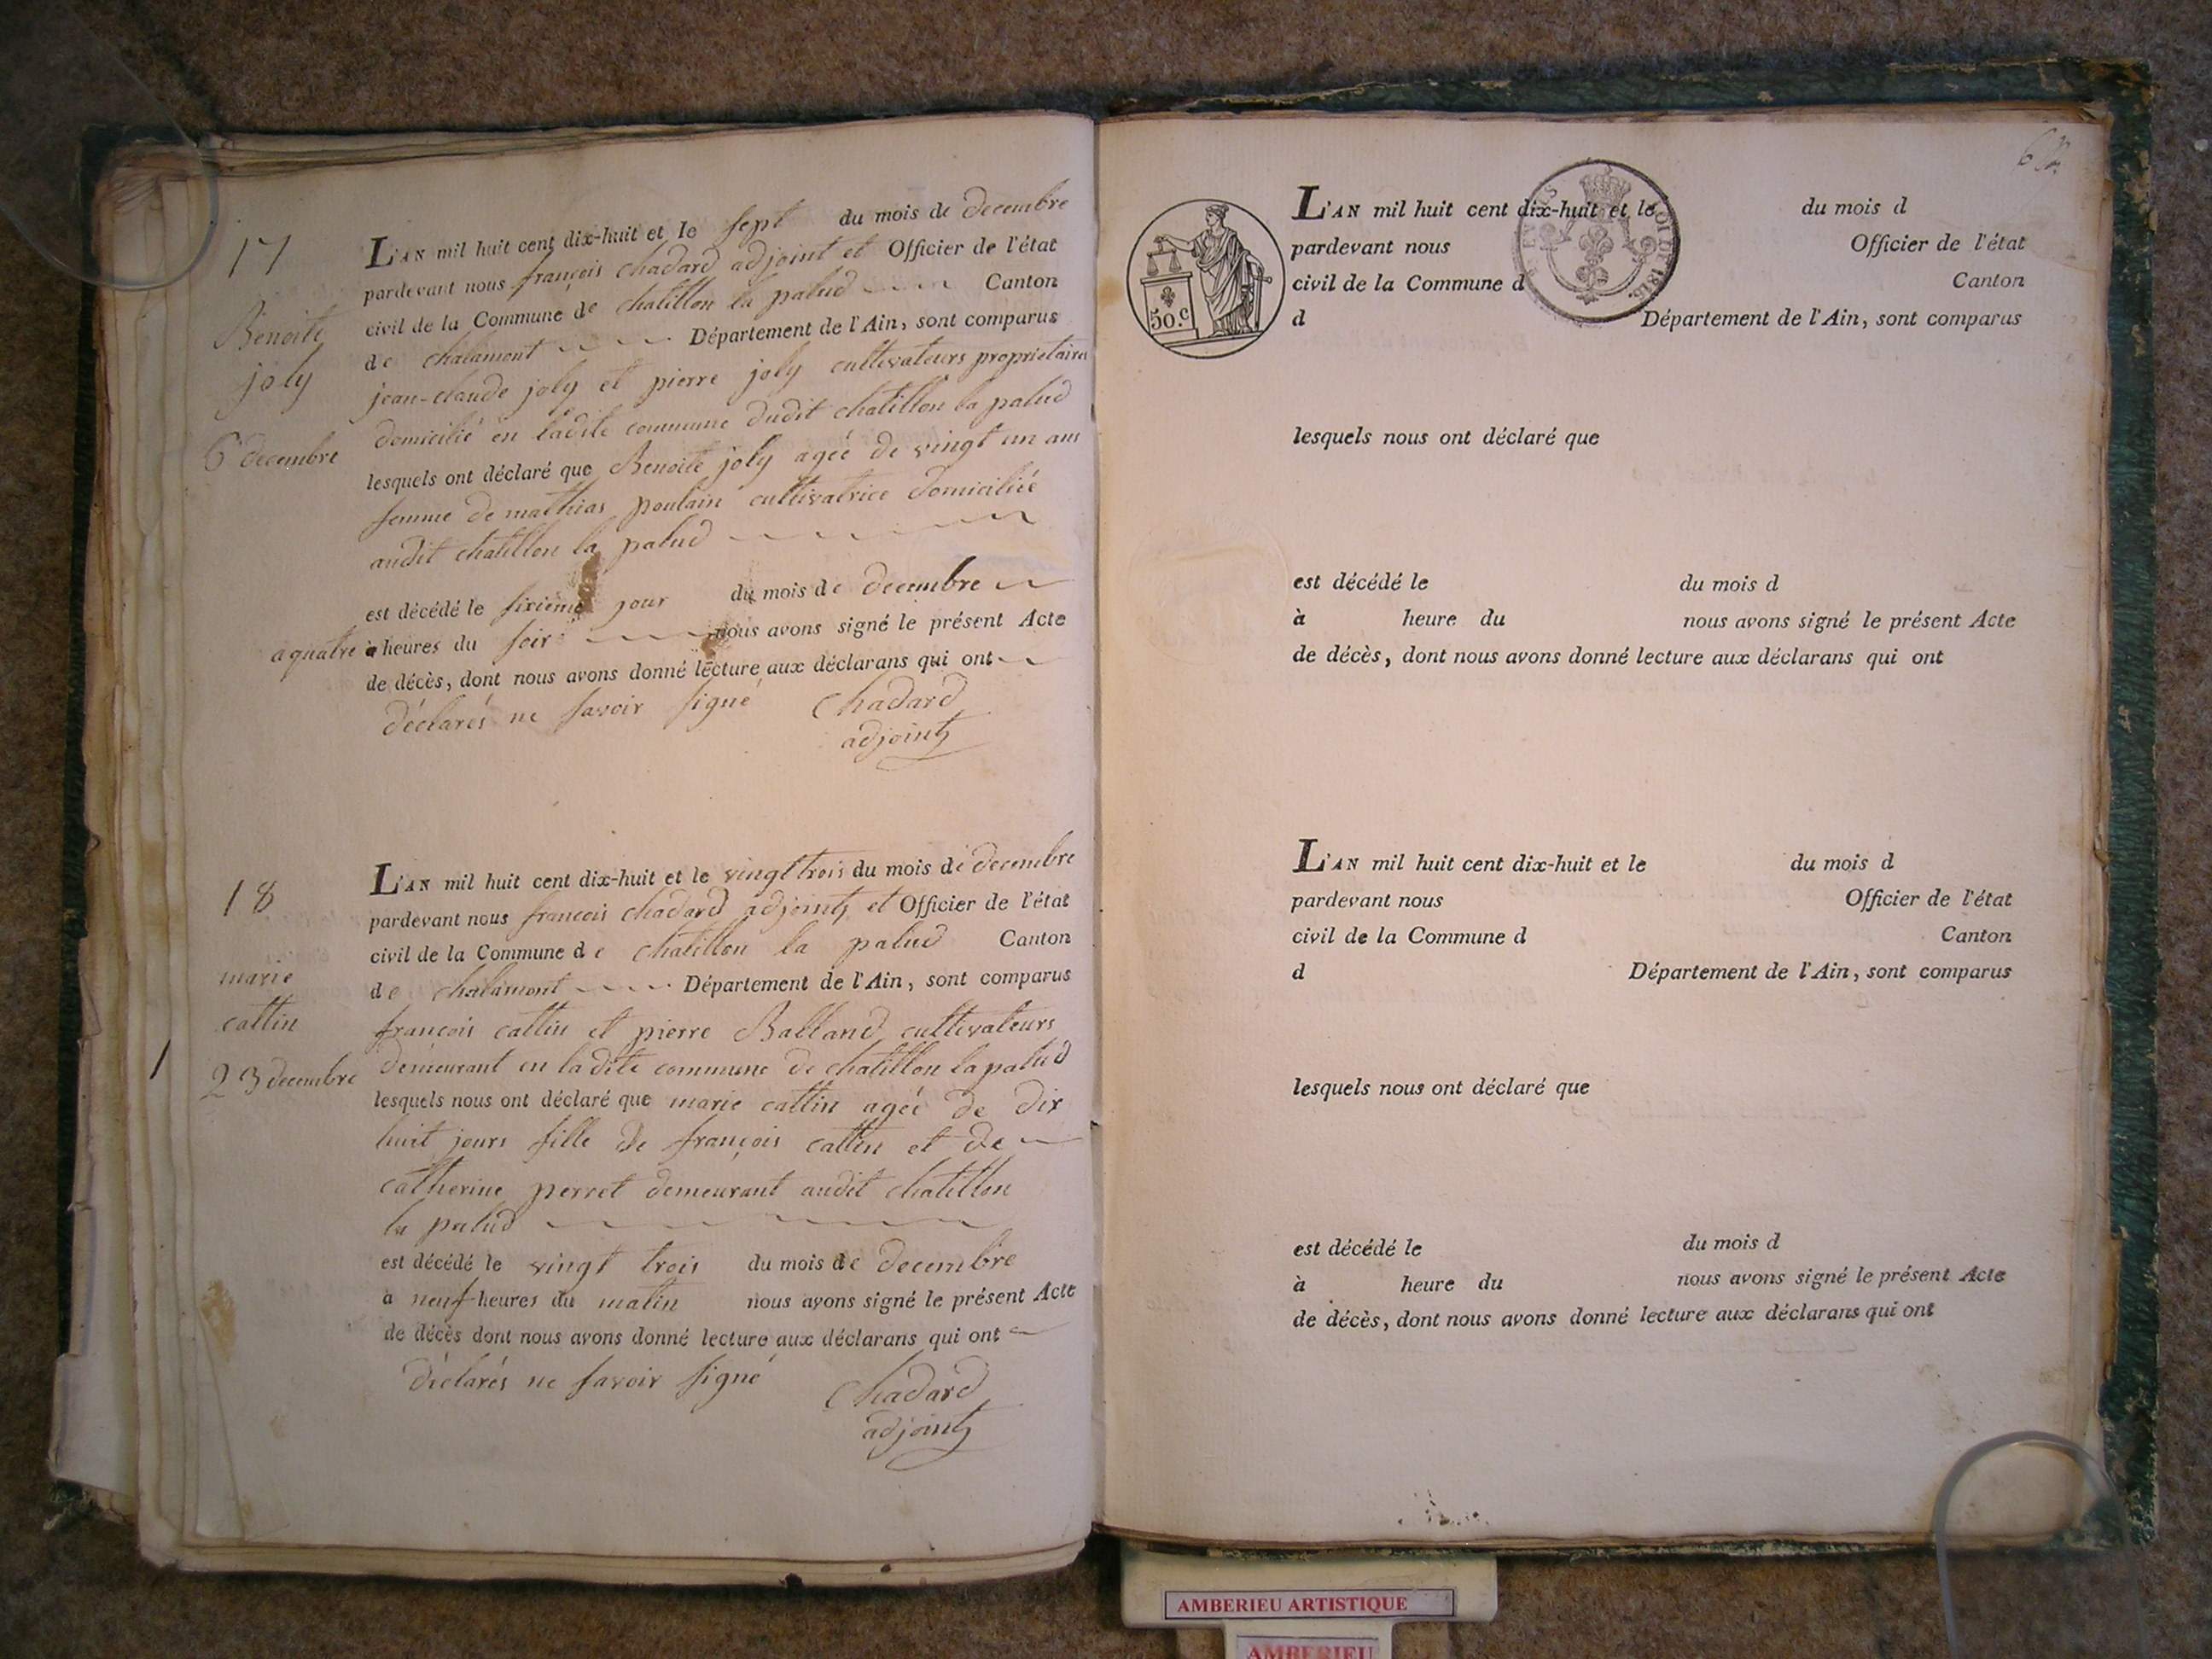 17
Benoite
joly
6 decembre
L'AN mil huit cent dix-huit et le sept du mois de decembre
pardevant nous françois chadard adjoint et Officier de l'état
civil de la Commune de chatillon la palud Canton
de chalamont Département de l'Ain, sont comparus
jean-claude joly et pierre joly cultivateurs propriétaires
domicilié en ladite commune dudit chatillon la palud
lesquels ont déclaré que Benoite joly agée de vingt un ans
femme de mathias poulain cultivatrice domiciliée
audit chatillon la palud
est décédé le sixieme jour du mois de decembre
a quatre à heures du soir nous avons signé le présent Acte
de décès, dont nous avons donné lecture aux déclarans qui ont
déclarés ne savoir signé
Chadard
adjoint
18
marie
cattin
23 decembre
L'AN mil huit cent dix-huit et le vingt trois du mois de decembre
pardevant nous françois chadard adjoint et Officier de l'état
civil de la Commune de chatillon la palud Canton
de chalamont Département de l'Ain, sont comparus
françois cattin et pierre Balland cultivateurs
demeurant en la dite commune de chatillon la palud
lesquels nous ont déclaré que marie cattin agée de dix
huit jours fille de françois cattin et de
catherine perret demeurant audit chatillon
la palud
est décédé le vingt trois du mois de decembre
a neuf heures du matin nous avons signé le présent Acte
de décès dont nous avons donné lecture aux déclarans qui ont
déclarés ne savoir signé
Chadard
adjoint
50.c
L'AN mil huit cent dix-huit et le du mois d
pardevant nous Officier de l'état
civil de la Commune d Canton
d Département de l'Ain, sont comparus
lesquels nous ont déclaré que
est décédé le du mois d
à heure du nous avons signé le présent Acte
de décès, dont nous avons donné lecture aux déclarans qui ont
L'AN mil huit cent dix-huit et le du mois d
pardevant nous Officier de l'état
civil de la Commune d Canton
d Département de l'Ain, sont comparus
lesquels nous ont déclaré que
est décédé le du mois d
à heure du nous avons signé le présent Acte
de décès, dont nous avons donné lecture aux déclarans qui ont
AMBERIEU ARTISTIQUE
AMBERIEU